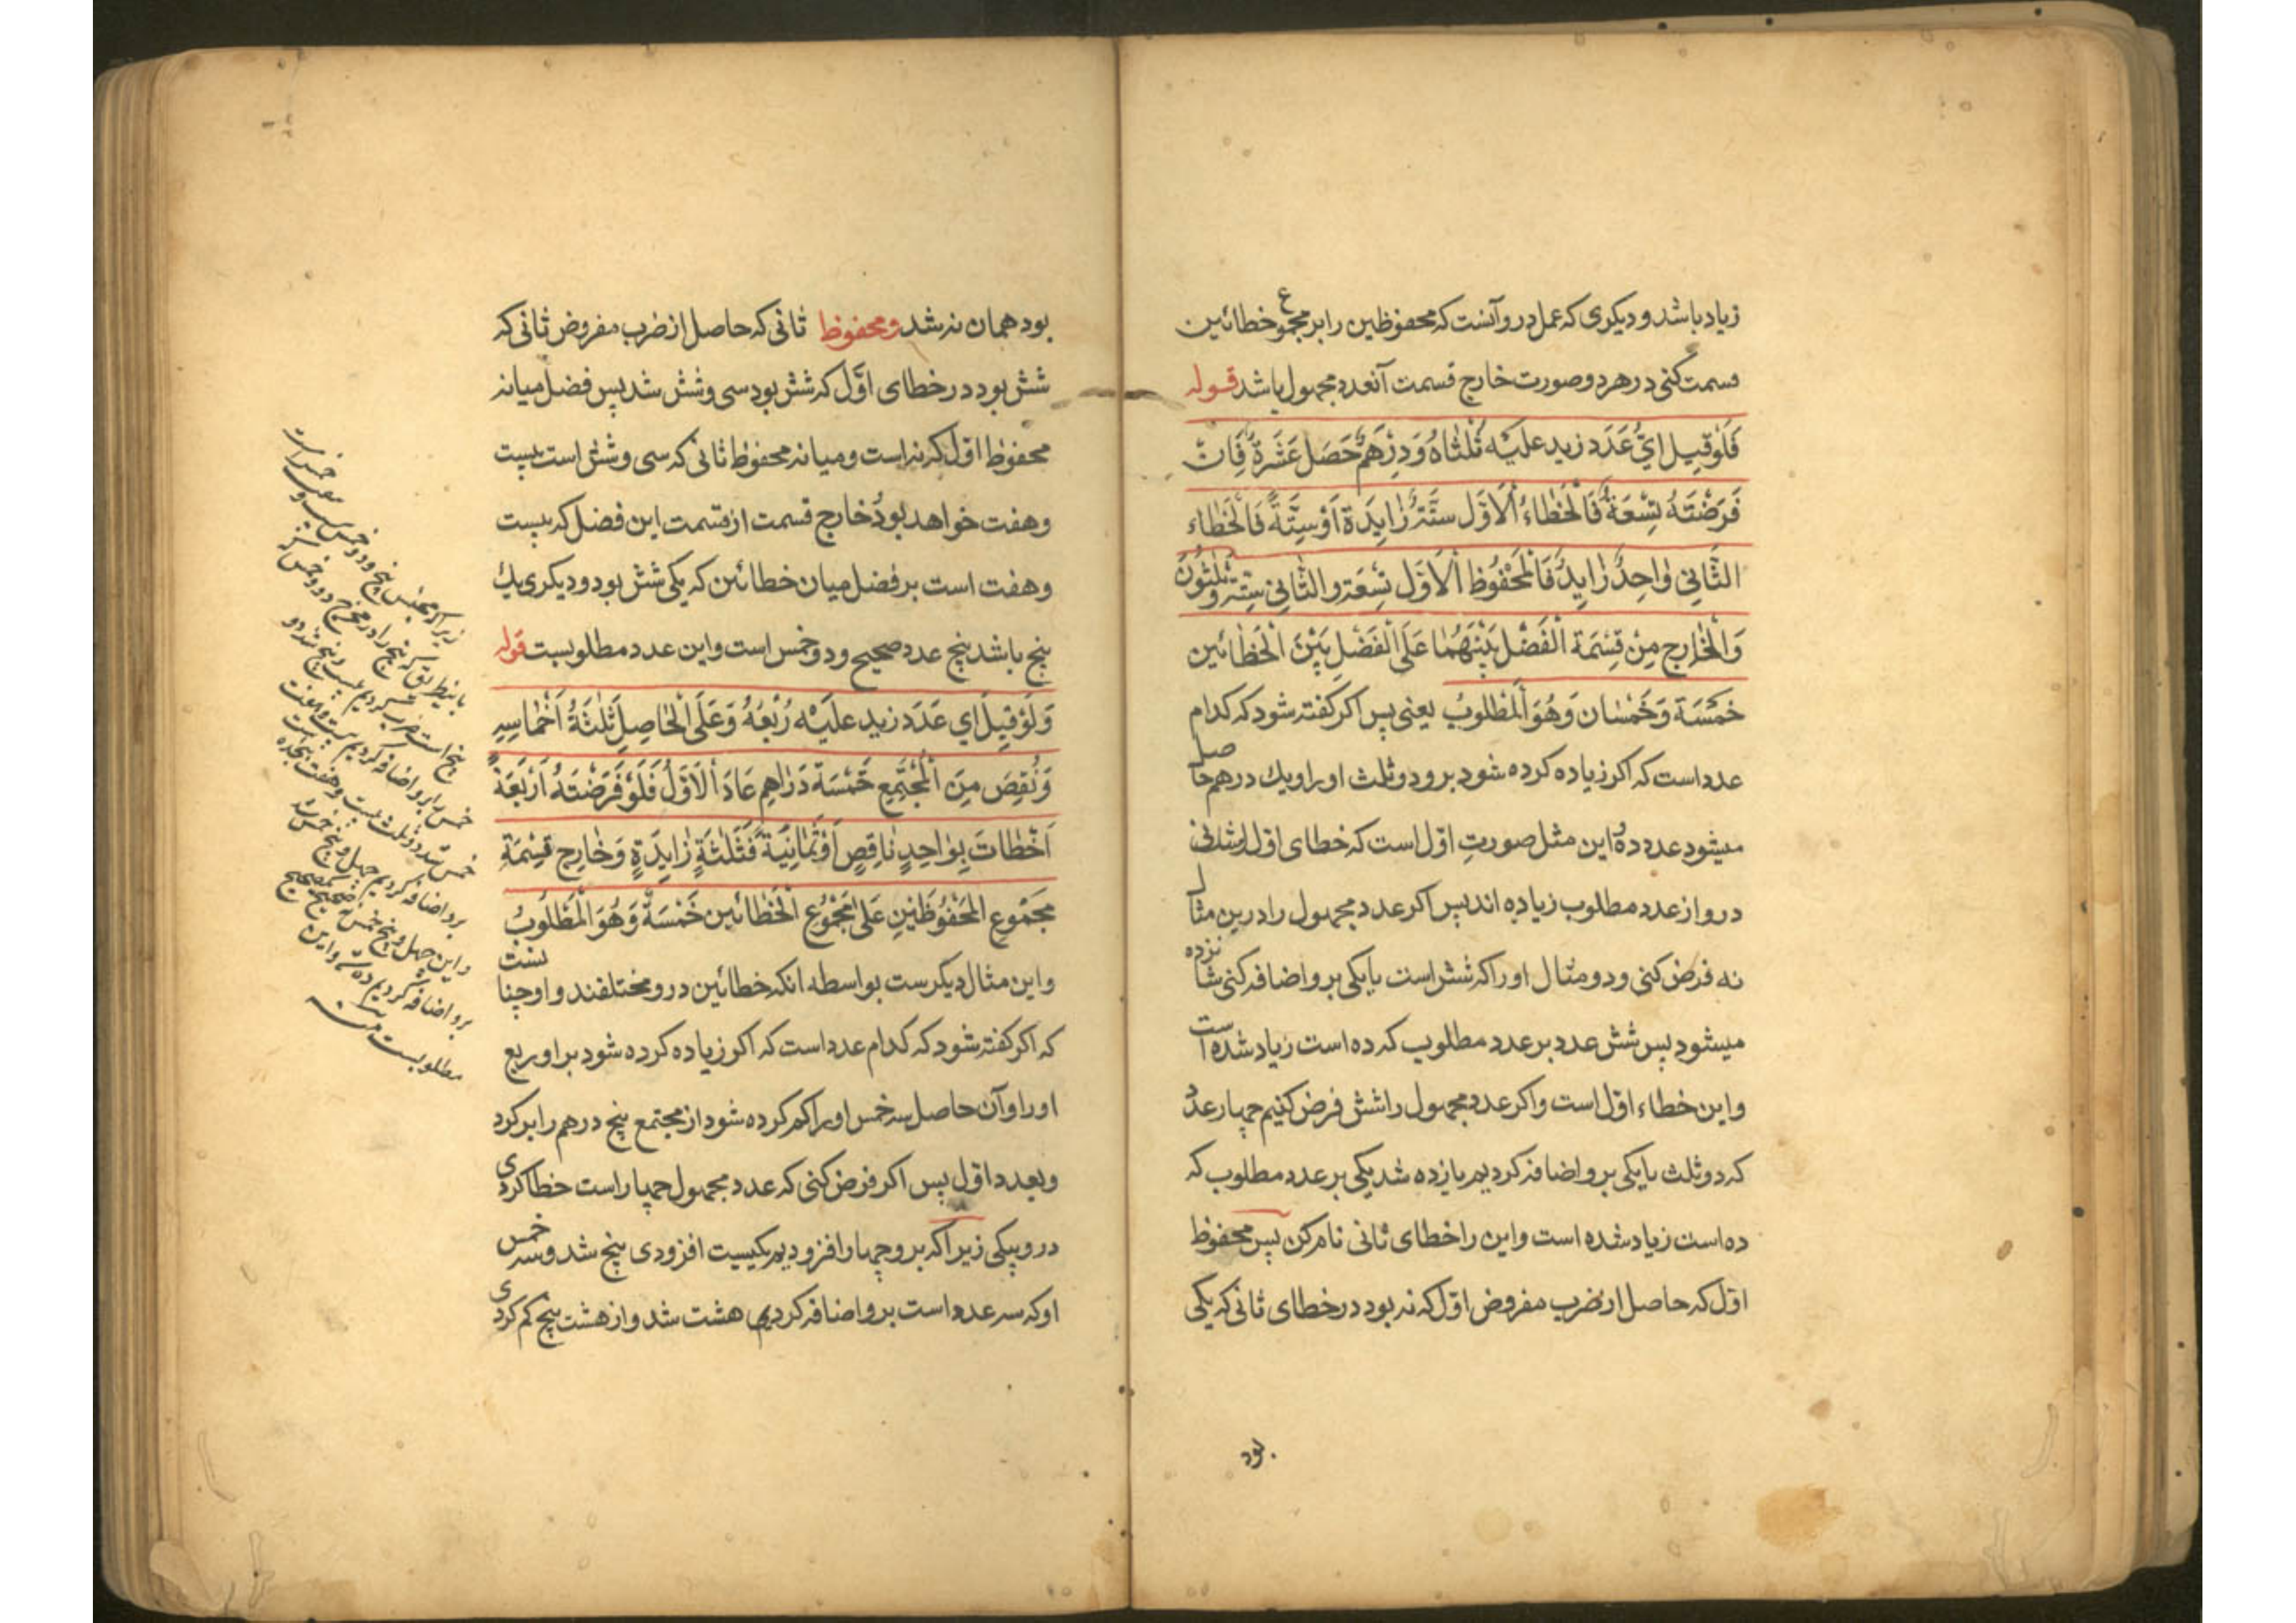 زیاد باشد و دیکری که عمل درو آنست که محفوظین را بر مجموع خطائین
قسمت کنی در هر دو صورت خارج قسمت آنعدد مجهول باشد قوله
فَلَوْ قیلَ اَیُّ عَدَد زید عَلَیْه ثُلْثاهُ وَ دِرْهَمٌ حَصَلَ عَشَرَةٌ فَاِنْ
فَرَضْتَهُ تِسْعَةً فَالْخَطاءُ الْاَوَّل سِتَّة زایِدَة اَوْ سِتَّةً فَالْخَطاء
الثّانی واحِدٌ زایِدٌ فَالْمَحْفُوظ الْاَوَّل تِسْعَة والثّانی سِتّة وثَلٰثُونَ
وَالْخارِج مِنْ قِسْمَة الْفَضْل بَیْنَهُمٰا عَلَی الْفَضْلِ بَیْنَ الْخَطٰائَین
خَمْسَة وَ خُمْسٰان وَ هُوَ الْمَطْلُوبُ یعنی پس اکر کفته شود که کدام
عدد است که اکر زیاده کرده شود برو دو ثلث او را و یك درهم حاصل
میشود عدد ده این مثل صورتِ اوّل است که خطای اوّل و ثانی
درو از عدد مطلوب زیاده اند پس اکر عدد مجهول را درین مثال
نه فرض کنی و دو مثال او را که شش است با یکی برو اضافه کنی شانزده
میشود پس شش عدد بر عدد مطلوب که ده است زیاد شده است
و این خطاء اوّل است و اکر عدد مجهول را شش فرض کنیم چهار عدد
که دو ثلث با یکی برو اضافه کردیم یازده شد یکی بر عدد مطلوب که
ده است زیاد شده است و این را خطای ثانی نام کن پس محفوظ
اوّل که حاصل از ضرب مفروض اوّل که نه بود در خطای ثانی که یکی
بود
بود همان نه شد و محفوظ ثانی که حاصل از ضرب مفروض ثانی که
شش بود در خطای اوّل که شش بود سی و شش شد پس فضل میانه
محفوظ اوّل که نه است و میانه محفوظ ثانی که سی و شش است بیست
و هفت خواهد بود خارج قسمت از قسمت این فضل که بیست
و هفت است بر فضل میان خطائین که یکی شش بود و دیکری یك
پنج باشد پنج عدد صحیح و دو خمس است و این عدد مطلوبست قوله
وَ لَوْ قیلَ ای عَدَد زید عَلَیْه رُبْعُهُ وَ عَلَی الْحٰاصِلِ ثَلٰثَةُ اَخْماسِهِ
وَ نُقِصَ مِنَ الْمُجْتَمِع خَمْسَة دَرٰاهِم عَادَ الْاَوَّلُ فَلَوْ فَرَضْتَهُ اَرْبَعَةً
اَخْطَات بِوٰاحِدٍ نٰاقِصٍ اَوْ ثَمٰانِیَةً فَثَلٰثَةٍ زٰایِدَةٍ وَ خٰارِج قِسْمَة
مَجْمُوع الْمَحْفُوظَیْنِ عَلیٰ مَجْمُوع الْخَطٰائین خَمْسَةٌ وَ هُوَ الْمَطْلُوبُ
و این مثال دیکرست بواسطه انکه خطائین درو مختلفند و او چنانست
که اکر کفته شود که کدام عدد است که اکر زیاده کرده شود بر او ربع
او را و آن حاصل سه خمس او را کم کرده شود از مجتمع پنج درهم را بر کرد
و بعدد اوّل پس اکر فرض کنی که عدد مجهول چهار است خطا کردی
درو بیکی زیرا که برو چهار افزودیم یکیست افزودی پنج شد و سه خمس
او که سه عدد است برو اضافه کردیم هشت شد و از هشت پنج کم کردی
زیرا که مجنس پنج و دو خمس بیست و هفت خمس است
باینطریق که پنج را در مخرج دو خمس که
پنج است ضرب کردیم بیست و پنج شد دو
خمس را برو اضافه کردیم بیست و هفت
خمس شد دو ثلث بیست و هفت هجده است
برو اضافه کردیم چهل و پنج خمس شد
و این چهل و پنج خمس نه صحیح
برو اضافه کردیم ده شد و این
مطلوبست منه